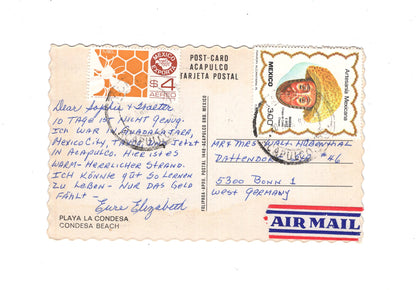 POST-CARD
ACAPULCO
TARJETA POSTAL
MEXICO
EXPORTA
$4
AEREO
MEXICO
Artesania Mexicana
300
Dear Sophie & Walter
10 TAGE IST NICHT GENUG.
ICH WAR IN GUADALAJARA,
MEXICO CITY, UND JETZT
IN ACAPULCO. HIER IST ES
WARM - HERRLICHER STRAND.
ICH KÖNNTE GUT SO LERNEN
ZU LEBEN - NUR DAS GELD
FEHLT -
Eure Elizabeth
PLAYA LA CONDESA
CONDESA BEACH
MR + MRS WALT HABENTHAL
DOTTENDORFER #46
5300 BONN 1
WEST GERMANY
AIR MAIL